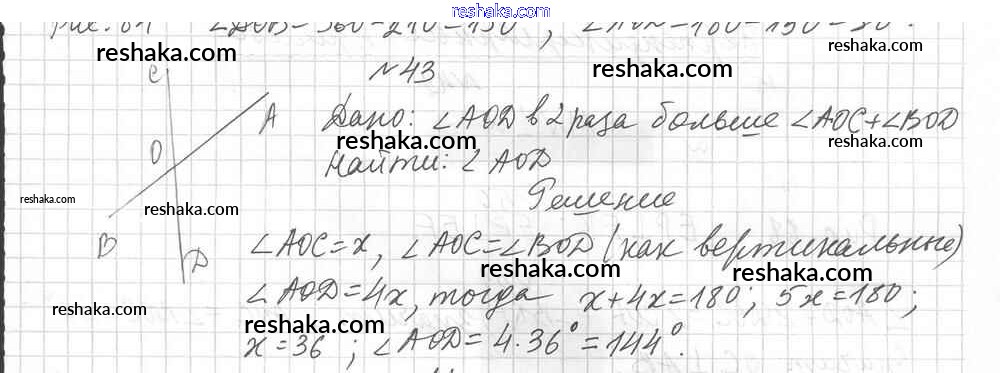 www.reshaka.com
рис. 64 ∠AOB=360-210=150°, ∠AON=180-150=30°.
reshaka.com
reshaka.com
№43
C
A
O
B
D
Дано: ∠AOD в 2 раза больше ∠AOC+∠BOD
reshaka.com
reshaka.com
Найти: ∠AOD
reshaka.com
reshaka.com
Решение
∠AOC=x, ∠AOC=∠BOD (как вертикальные)
reshaka.com
reshaka.com
∠AOD=4x, тогда x+4x=180; 5x=180;
reshaka.com
reshaka.com
x=36°; ∠AOD=4·36°=144°.